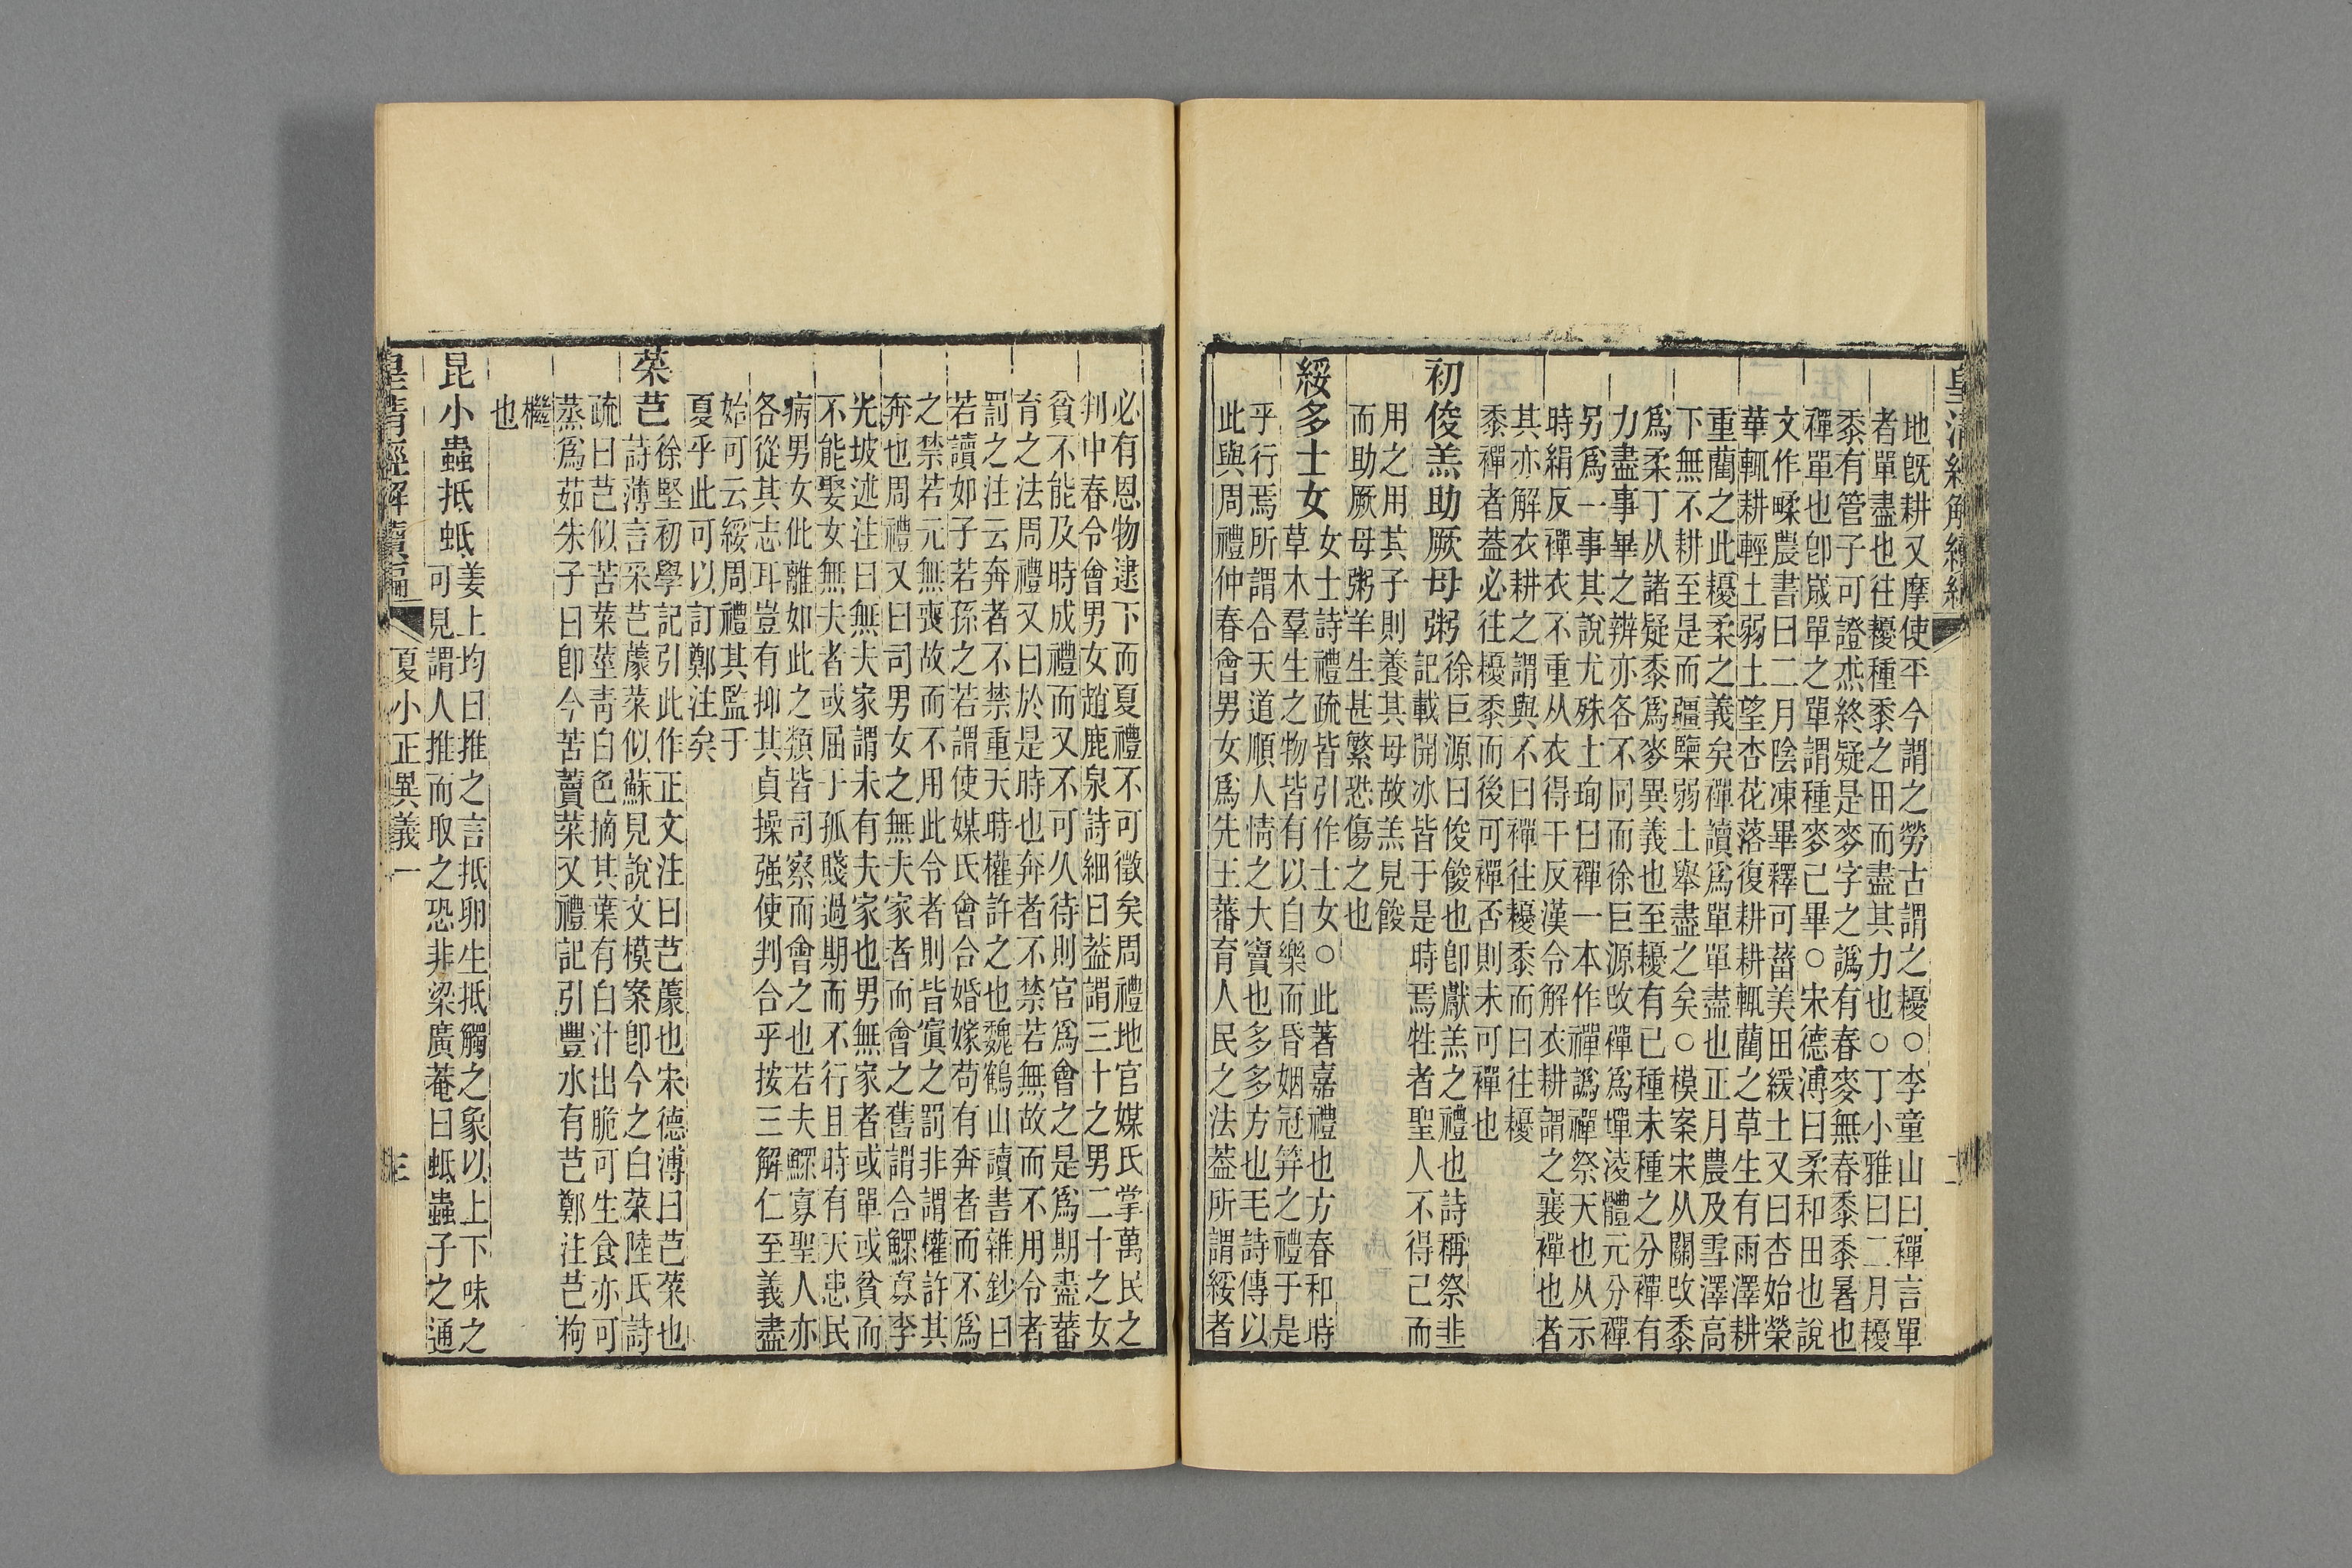 皇清經解續編
地旣耕又摩使平今謂之勞古謂之耰○李童山曰襌言單
者單盡也往耰種黍之田而盡其力也○丁小雅曰二月耰
黍有管子可證烝終疑是麥字之譌有春麥無春黍黍暑也
襌單也卽嵗單之單謂種麥己畢○宋德溥曰柔和田也說
文作㽥農書曰二月陰凍畢釋可菑美田緩土又曰杏始榮
華輒耕輕土弱土望杏花落復耕耕輒藺之草生有雨澤耕
重藺之此耰柔之義矣襌讀爲單單盡也正月農及雪澤高
下無不耕至是而疆檃弱土舉盡之矣○模案宋从關改黍
爲柔丁从諸疑黍爲麥異義也至耰有已種未種之分襌有
力盡事畢之辨亦各不同而徐巨源改襌爲墠淩體元分襌
另爲一事其說尤殊土珣曰襌一本作禪譌禪祭天也从示
時絹反襌衣不重从衣得干反漢令解衣耕謂之襄襌也者
其亦解衣耕之謂與不曰襌往耰黍而曰往耰
黍襌者葢必往耰黍而後可襌否則未可襌也
初俊羔助厥母粥
徐巨源曰俊餕也卽獻羔之禮也詩稱祭韭
記載開冰皆于是時焉牲者聖人不得己而
用之用其子則養其母故羔見餕
而助厥母粥羊生甚繁恐傷之也
綏多士女
女士詩禮疏皆引作士女○此著嘉禮也方春和時
草木羣生之物皆有以自樂而昏姻冠筓之禮于是
乎行焉所謂合天道順人情之大竇也多多方也毛詩傳以
此與周禮仲春會男女爲先王蕃育人民之法葢所謂綏者
必有恩物逮下而夏禮不可徵矣周禮地官媒氏掌萬民之
判中春令會男女趙鹿泉詩細曰葢謂三十之男二十之女
貧不能及時成禮而又不可久待則官爲會之是爲期盡蕃
育之法周禮又曰於是時也奔者不禁若無故而不用令者
罰之注云奔者不禁重天時權許之也魏鶴山讀書雜鈔曰
若讀如子若孫之若謂使媒氏會合婚嫁苟有奔者而不爲
之禁若元無喪故而不用此令者則皆寘之罰非謂權許其
奔也周禮又曰司男女之無夫家者而會之舊謂合鰥寡李
光坡述注曰無夫家謂未有夫家也男無家者或單或貧而
不能娶女無夫者或屈于孤賤過期而不行且時有天患民
病男女仳離如此之類皆司察而會之也若夫鰥寡聖人亦
各從其志耳豈有抑其貞操强使判合乎按三解仁至義盡
始可云綏周禮其監于
夏乎此可以訂鄭注矣
菜芑
徐堅初學記引此作正文注曰芑蘪也宋德溥曰芑菜也
詩薄言采芑蘪菜似蘇見說文模案卽今之白菜陸氏詩
疏曰芑似苦菜莖靑白色摘其葉有白汁出脆可生食亦可
蒸爲茹朱子曰卽今苦藚菜又禮記引豐水有芑鄭注芑枸
檵
也
昆小蟲抵蚳
姜上均曰推之言抵卵生抵觸之象以上下味之
可見謂人推而取之恐非梁廣菴曰蚳蟲子之通
皇淸經解續編
夏小正異義一